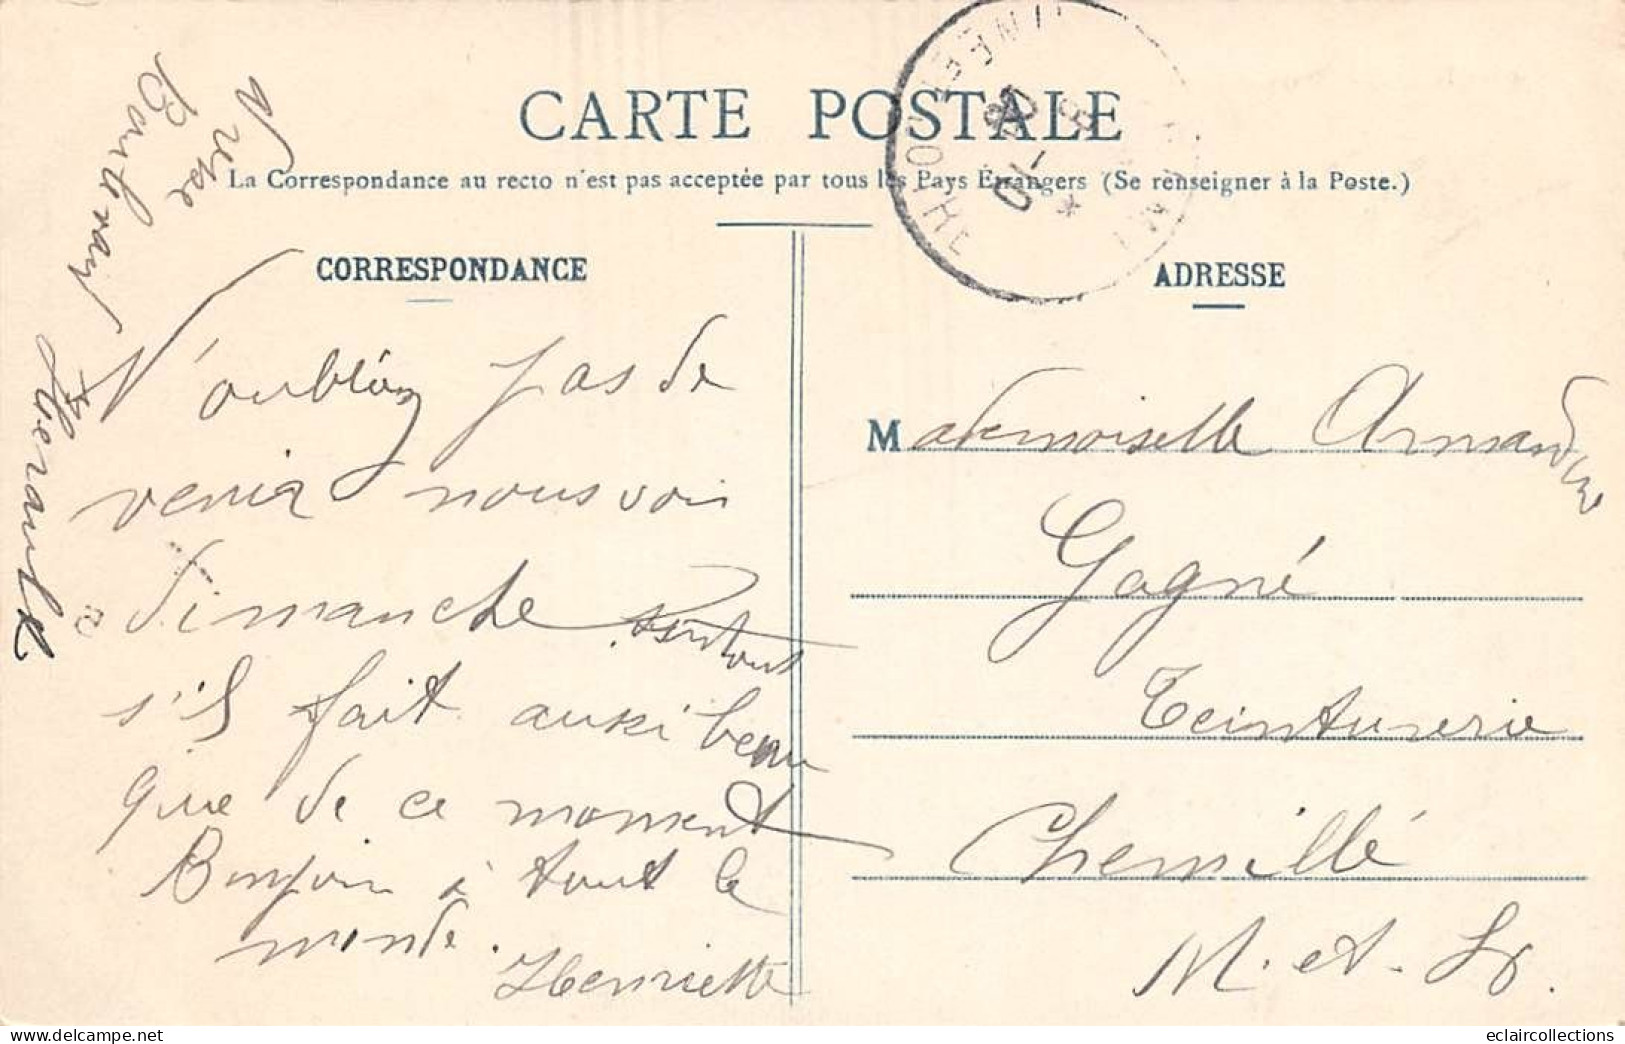 CARTE POSTALE
La Correspondance au recto n'est pas acceptée par tous les Pays Etrangers (Se renseigner à la Poste.)
CORRESPONDANCE
N'oubliez pas de
venir nous voir
dimanche surtout
s'il fait aussi beau
que de ce moment
Bonjour à tout le
monde.
Henriette
Herault
ADRESSE
Mademoiselle Armandine
Gagné
Teinturerie
Chemillé
M. et L.
eclaircollections